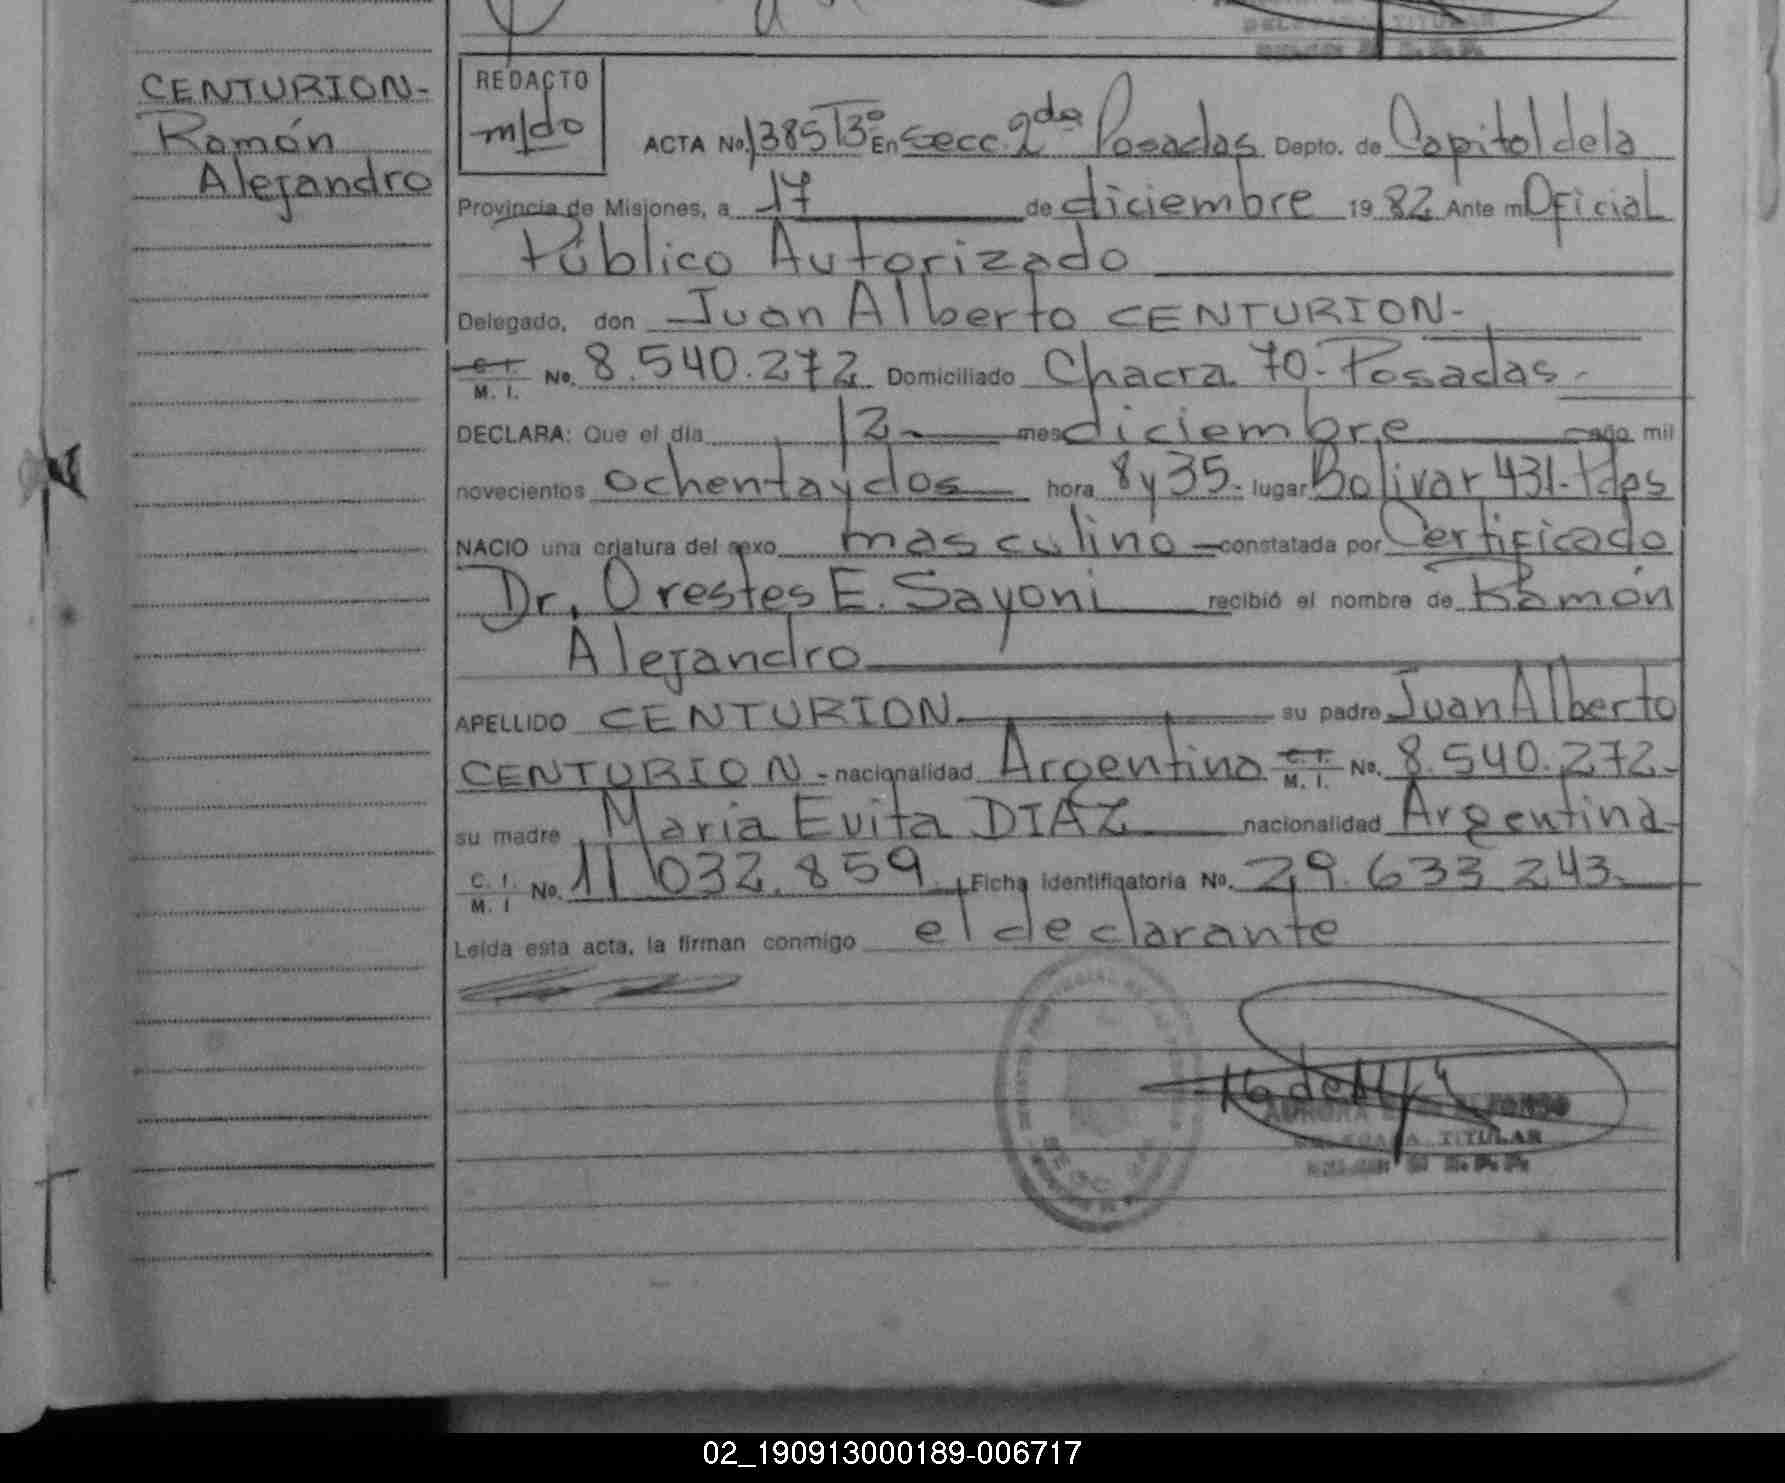 TITULAR
CENTURION-
Ramón
Alejandro
REDACTO
m/do
ACTA No. 1385 T3º En Secc. 2da Posadas Depto. de Capital de la
Provincia de Misiones, a 17 de diciembre 19 82 Ante mí Oficial
Público Autorizado
Delegado, don Juan Alberto CENTURION-
C. I.
M. I. No. 8.540.272 Domiciliado Chacra 70-Posadas-
DECLARA: Que el día 12 mes diciembre año mil
novecientos ochenta y dos hora 8 y 35- lugar Bolivar 431-Pdas
NACIO una criatura del sexo masculino constatada por Certificado
Dr. Orestes E. Sayoni recibió el nombre de Ramón
Alejandro
APELLIDO CENTURION su padre Juan Alberto
CENTURION - nacionalidad Argentina C. I.
M. I. No. 8.540.272-
su madre Maria Evita DIAZ nacionalidad Argentina-
C. I.
M. I No. 11.032.859. Ficha identificatoria No. 29.633.243-
Leída esta acta, la firman conmigo el declarante
TITULAR
02_190913000189-006717